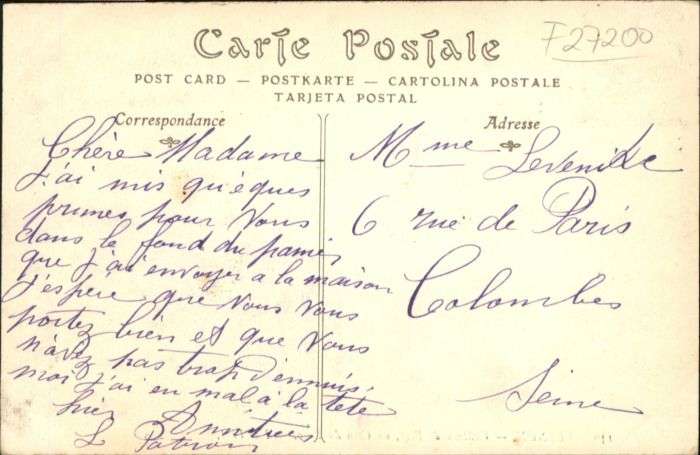 Carte Postale
F27200
POST CARD — POSTKARTE — CARTOLINA POSTALE
TARJETA POSTAL
Correspondance
Chère Madame
J'ai mis quéques
prunes pour Vous
dans le fond du panier
que j'ai envoyer a la maison
J'espère que Vous Vous
portez bien et que Vous
n'avez pas trop d'ennuis.
moi j'ai eu mal à la tete
hier Amitiées
L
Adresse
Mme
6 rue de Paris
Colombes
Seine